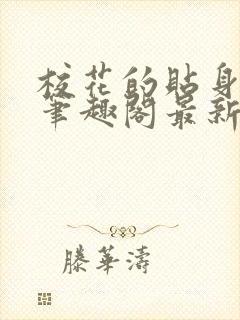 校花的贴身
笔趣阁最新
滕華濤